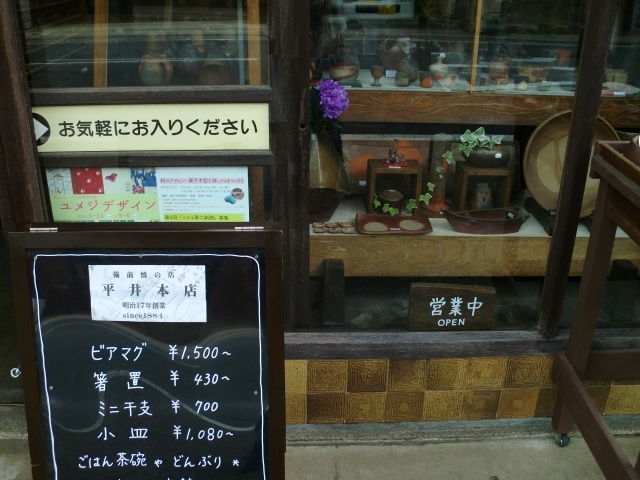 お気軽にお入りください
ユメジデザイン
備前焼の店
平井本店
明治17年創業
since1884
営業中
OPEN
ビアマグ ¥1,500~
箸置 ¥ 430~
ミニ干支 ¥ 700
小皿 ¥1,080~
ごはん茶碗やどんぶり *